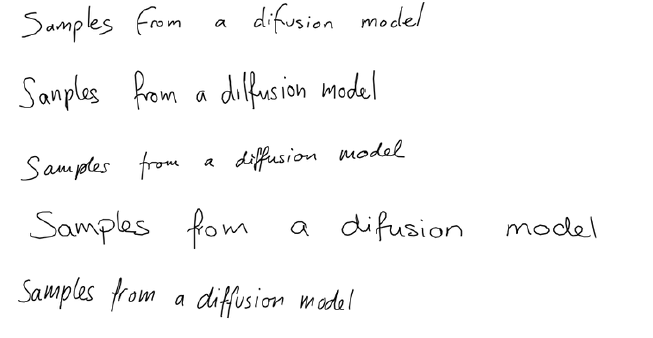 Samples from a difusion model
Sanples from a dilfusion model
Samples from a diffusion model
Samples fom a difusion model
Samples from a diffusion model